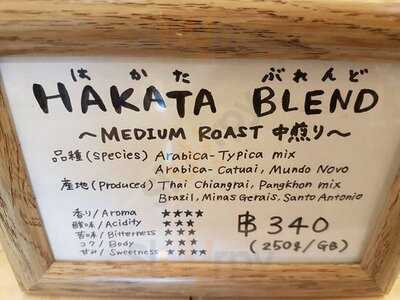 はかた ぶれんど
HAKATA BLEND
~MEDIUM ROAST 中煎り~
品種(species) Arabica-Typica mix
Arabica-Catuai, Mundo Novo
産地(Produced) Thai Chiangrai, Pangkhon mix
Brazil, Minas Gerais, Santo Antonio
香り/Aroma ★★★★
酸味/Acidity ★★★
苦味/Bitterness ★★★
コク/Body ★★★
甘み/Sweetness ★★★★★
฿340
(250g/GB)